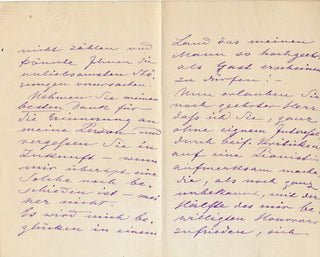 nicht zählen und
könnte Ihnen die
unliebsamsten Stö,
rungen verursachen.
Nehmen Sie meinen
besten Dank für
die Erinnerung an
meine Person und
vergessen Sie in
Zukunft – wenn
mir überhpt eine
Solche noch be,
schieden ist – mei,
ner nicht.
Es wird mich be,
glücken in einem
Land das meinen
Mann so hochgeehrt
als Gast erscheinen
zu dürfen!
Nun erlauben Sie
noch geehrter Herr
daß ich Sie, ganz
ohne eignem Interesse
durch beif. Kritiken
auf eine Pianistin
aufmerksam mache,
die, als noch ganz
unbekannt, mit der
Hälfte des mir be,
willigten Honorars
zufrieden, sich